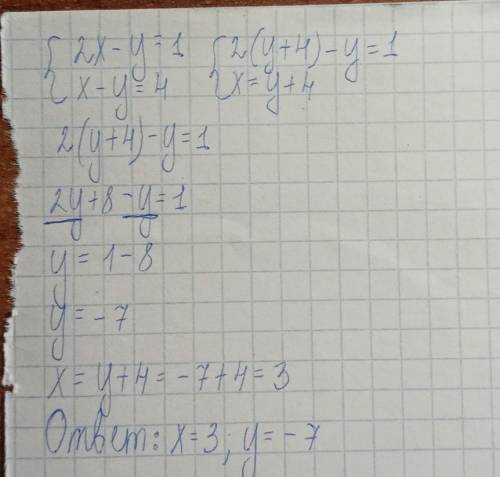 2x-y=1 2(y+4)-y=1
x-y=4 x=y+4
2(y+4)-y=1
2y+8-y=1
y=1-8
y=-7
x=y+4=-7+4=3
Ответ: x=3; y=-7